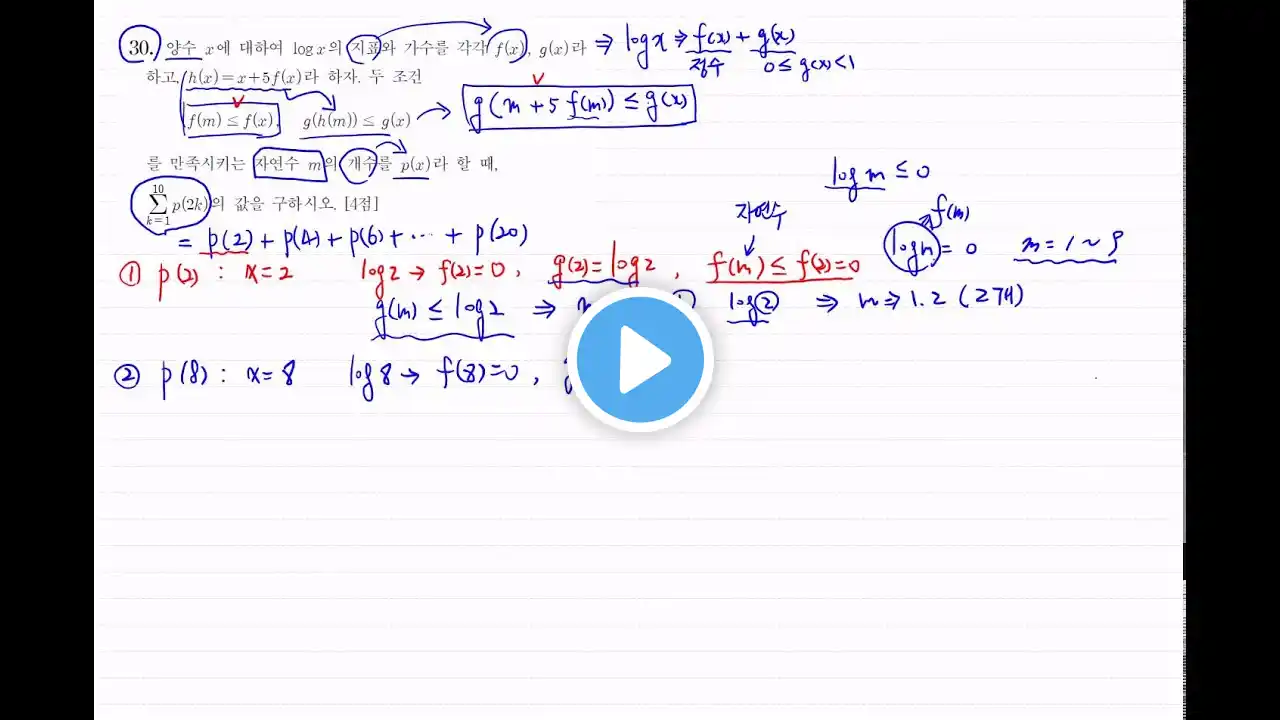 30. 양수 x에 대하여 log x의 지표와 가수를 각각 f(x), g(x)라 ⇒ log x ⇒ f(x) + g(x)
정수 0 ≤ g(x) < 1
하고, h(x) = x + 5f(x)라 하자. 두 조건
f(m) ≤ f(x), g(h(m)) ≤ g(x) → g(m + 5 f(m)) ≤ g(x)
를 만족시키는 자연수 m의 개수를 p(x)라 할 때,
log m ≤ 0
\sum_{k=1}^{10} p(2k)의 값을 구하시오. [4점]
= p(2) + p(4) + p(6) + ... + p(20)
자연수
f(m)
log m = 0 m = 1 ~ 9
① p(2) : x = 2 log 2 → f(2) = 0, g(2) = log 2, f(m) ≤ f(2) = 0
g(m) ≤ log 2 ⇒ log ② ⇒ m ⇒ 1. 2 (2개)
② p(8) : x = 8 log 8 → f(8) = 0,